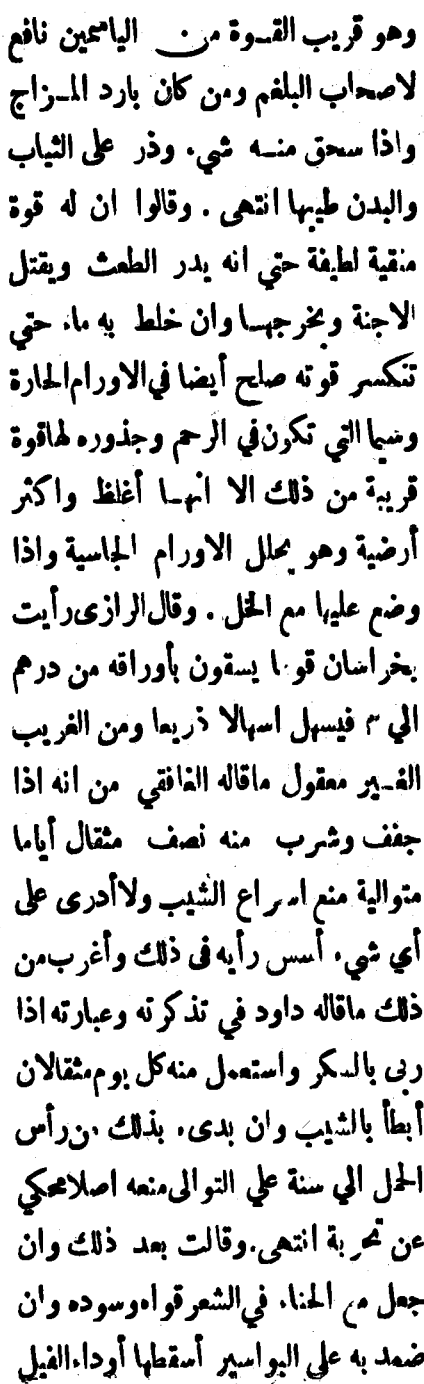 وهو قريب القوة من الياسمين نافع
لاصحاب البلغم ومن كان بارد المزاج
واذا سحق منه شيء وذر على الثياب
والبدن طيبها انتهى . وقالوا ان له قوة
منقية لطيفة حتي انه يدر الطمث ويقتل
الاجنة ويخرجها وان خلط به ماء حتي
تنكسر قوته صلح أيضا في الاورام الحارة
وسيما التي تكون في الرحم وجذوره لها قوة
قريبة من ذلك الا انها أغلظ واكثر
أرضية وهو يحلل الاورام الجاسية واذا
وضع عليها مع الخل . وقال الرازى رأيت
بخراسان قوما يسقون بأوراقه من درهم
الي ٣ فيسهل اسهالا ذريعا ومن الغريب
الغير معقول ماقاله الغافقي من انه اذا
جفف وشرب منه نصف مثقال أياما
متوالية منع اسراع الشيب ولا أدرى على
أي شيء أسس رأيه فى ذلك وأغرب من
ذلك ماقاله داود في تذكرته وعبارته اذا
ربى بالسكر واستعمل منه كل يوم مثقالان
أبطأ بالشيب وان بدىء بذلك من رأس
الحمل الي سنة علي التوالى منعه اصلا محكي
عن تجربة انتهى. وقالت بعد ذلك وان
جعل مع الحناء في الشعر قواه وسوده وان
ضمد به علي البواسير أسقطها أو داء الفيل